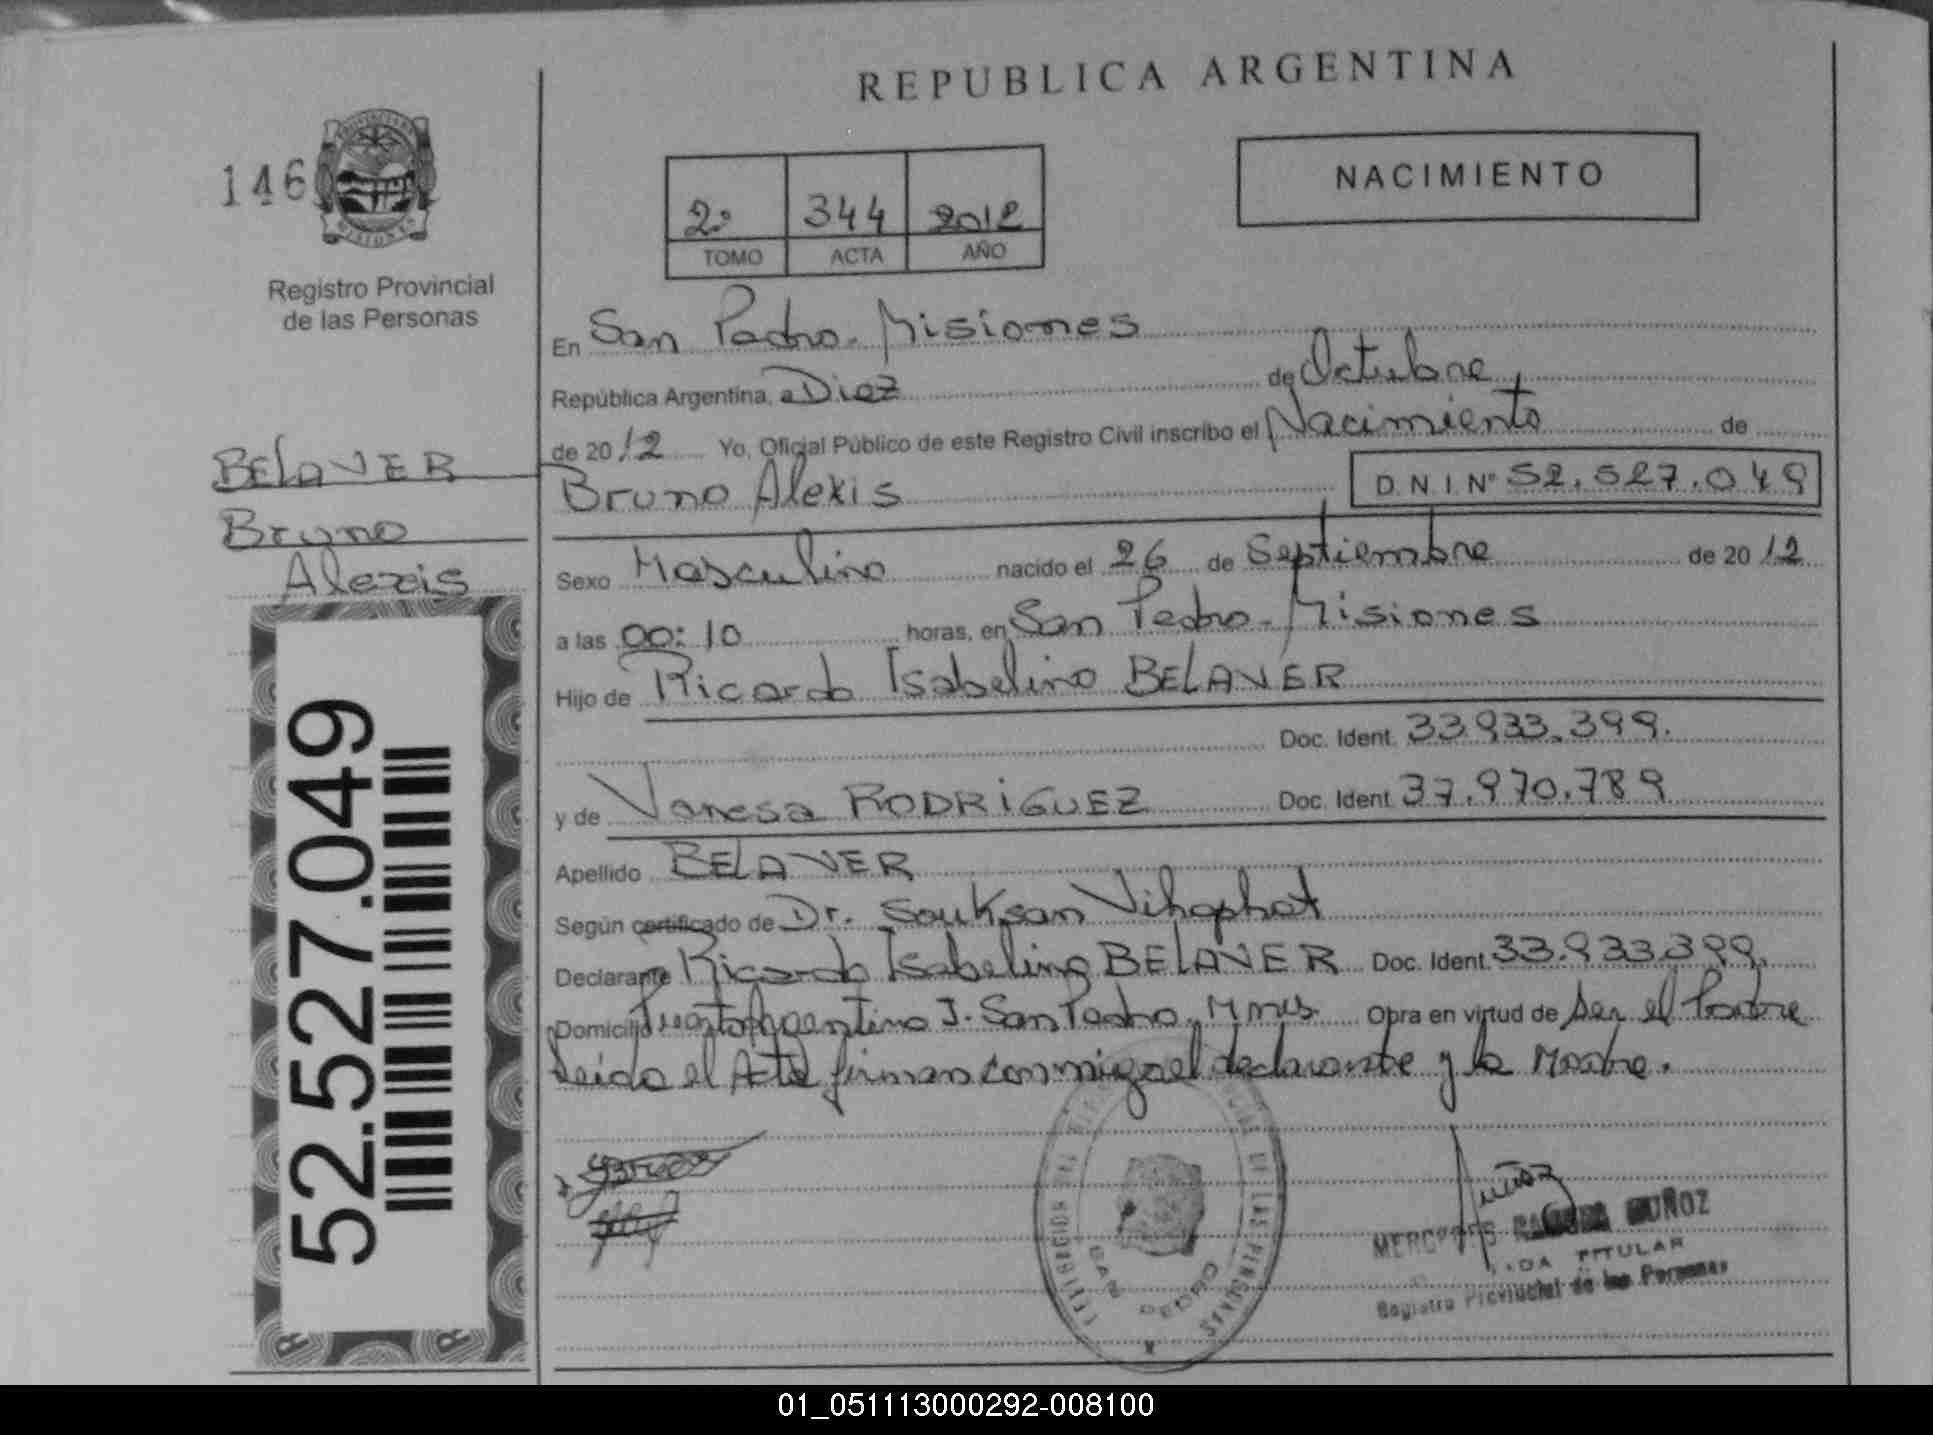 REPUBLICA ARGENTINA
146
PROVINCIA DE
MISIONES
Registro Provincial
de las Personas
2º 344 2012
TOMO ACTA AÑO
NACIMIENTO
En San Pedro - Misiones
República Argentina, a Diez de Octubre
de 2012 Yo, Oficial Público de este Registro Civil inscribo el Nacimiento de
Bruno Alexis D.N.I. Nº 52.527.049
BELAVER
Bruno
Alexis
52.527.049
Sexo Masculino nacido el 26 de Septiembre de 2012
a las 00:10 horas, en San Pedro - Misiones
Hijo de Ricardo Isabelino BELAVER
Doc. Ident. 33.933.399.
y de Vanesa RODRIGUEZ Doc. Ident. 37.970.789
Apellido BELAVER
Según certificado de Dr. Souksan Vihaphat
Declarante Ricardo Isabelino BELAVER Doc. Ident. 33.933.399.
Domicilio Puerto Argentino I. San Pedro, Mnes Obra en virtud de ser el Padre
Leída el Acta firman conmigo el declarante y la Madre.
SAN PEDRO
DE LAS PERSONAS
MERCEDES MUÑOZ
TITULAR
Registro Provincial de las Personas
01_051113000292-008100